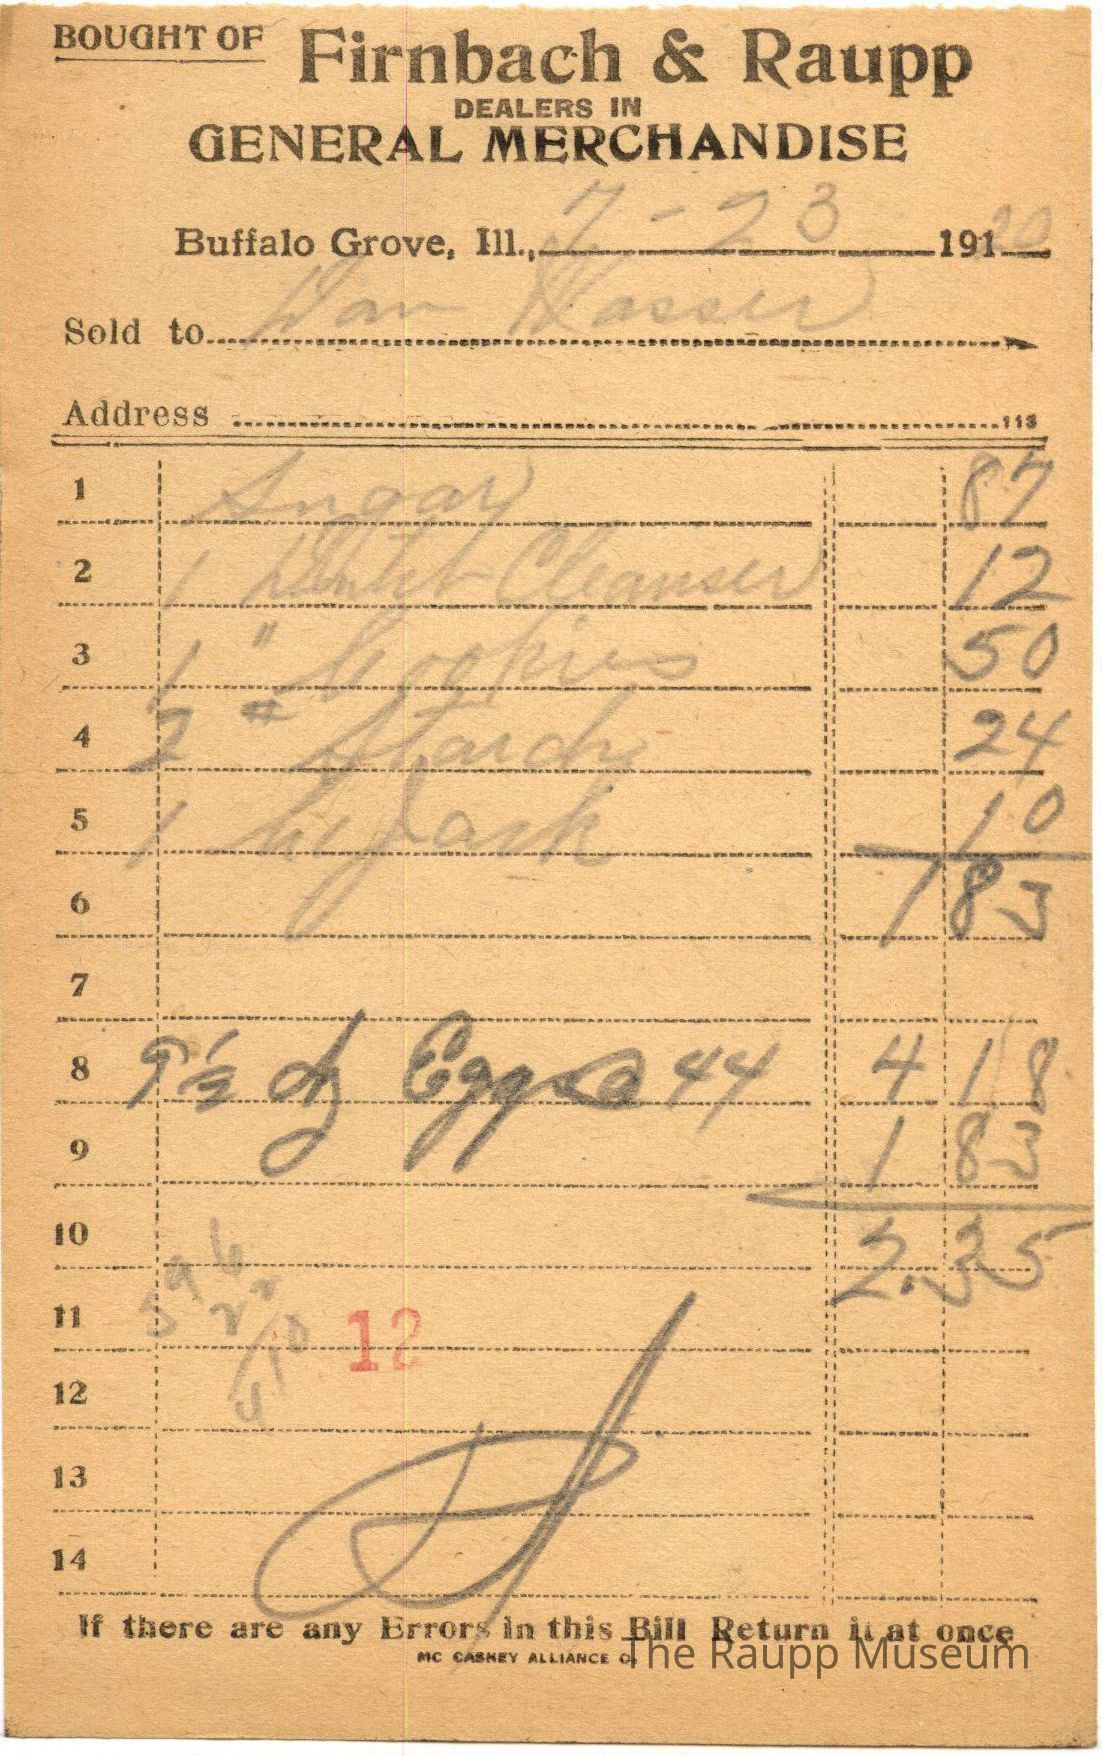 BOUGHT OF Firnbach & Raupp
DEALERS IN
GENERAL MERCHANDISE
Buffalo Grove, Ill., 7-23 191 20
Sold to Wasser
Address 113
1 Sugar 87
2 1 Cleanser 12
3 1 " Cookies 50
4 2 " Starch 24
5 1 Jack 10
6 1 83
7
8 9½ dz Eggs @ 44 4 18
9 1 83
10 2.35
11 12
12
13
14
If there are any Errors in this Bill Return it at once
MC CASKEY ALLIANCE O.
The Raupp Museum